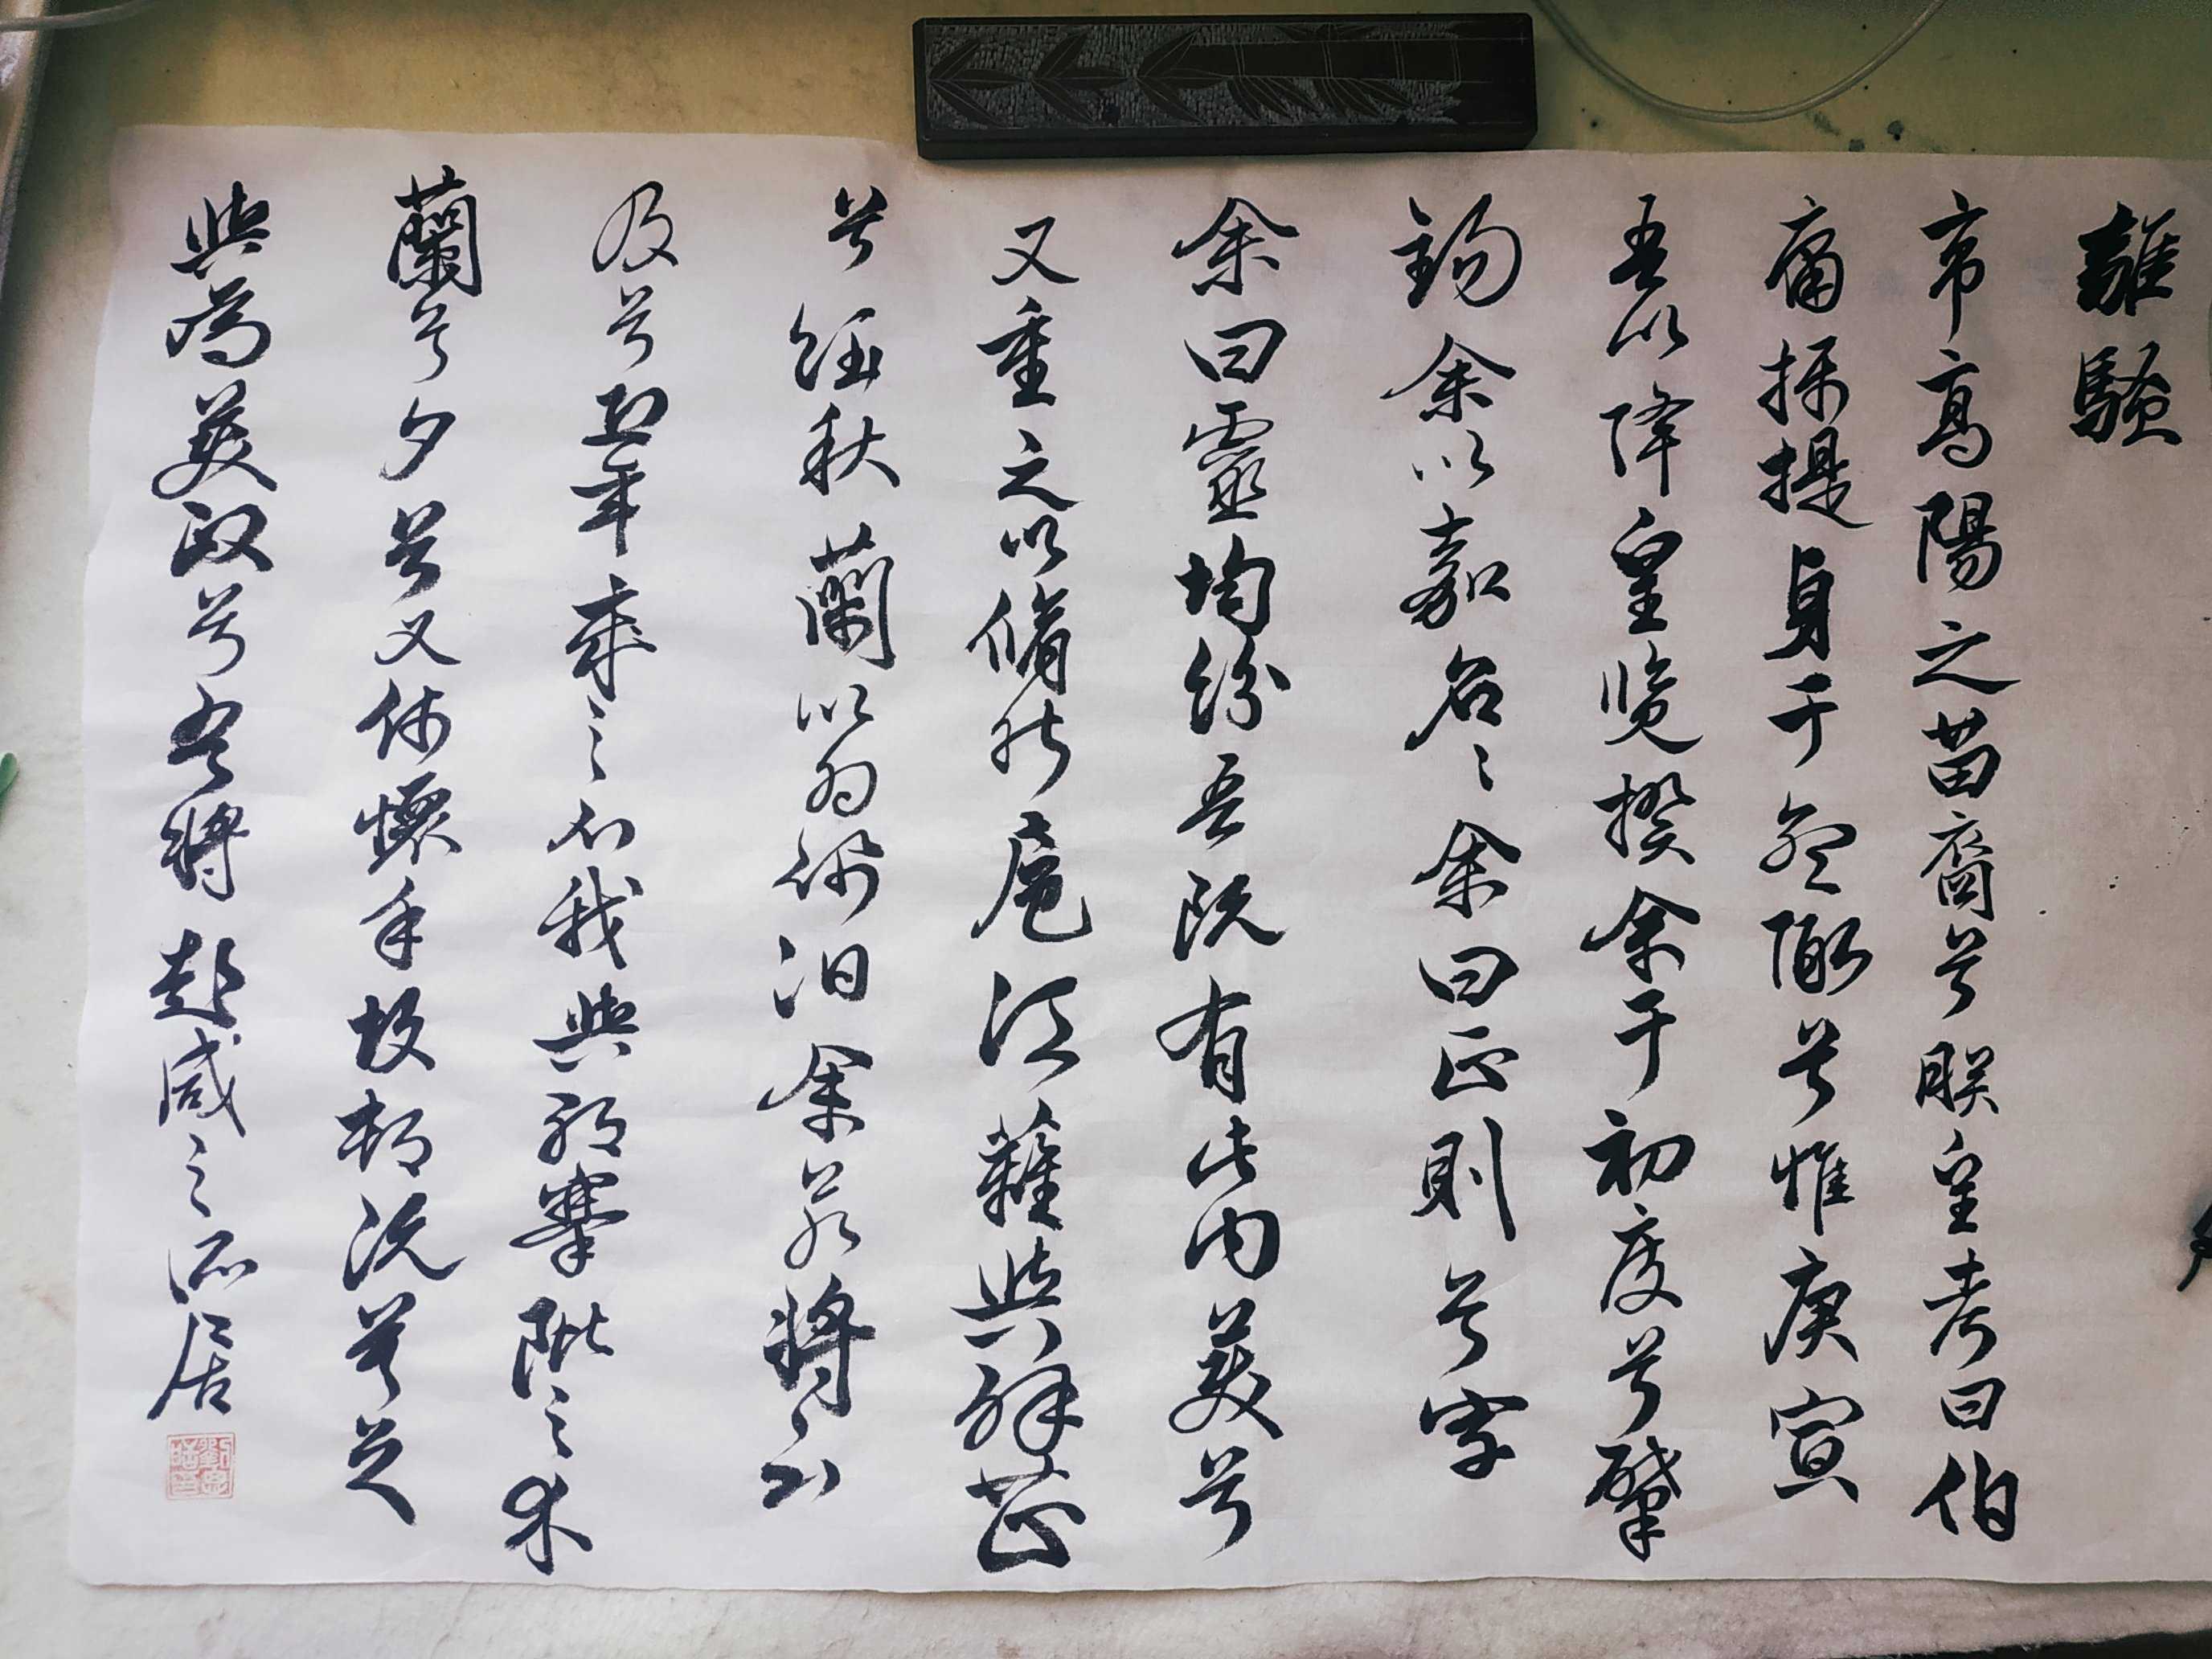 離騷
帝高陽之苗裔兮朕皇考曰伯
庸攝提貞于孟陬兮惟庚寅
吾以降皇覽揆余于初度兮肇
錫余以嘉名〻余曰正則兮字
余曰靈均紛吾既有此內美兮
又重之以脩能扈江蘺與辟芷
兮紉秋蘭以為佩汩余若將不
及兮恐年歲之不我與朝搴阰之木
蘭兮夕兮又何懷乎故都既莫足
與為美政兮吾將彭咸之所居